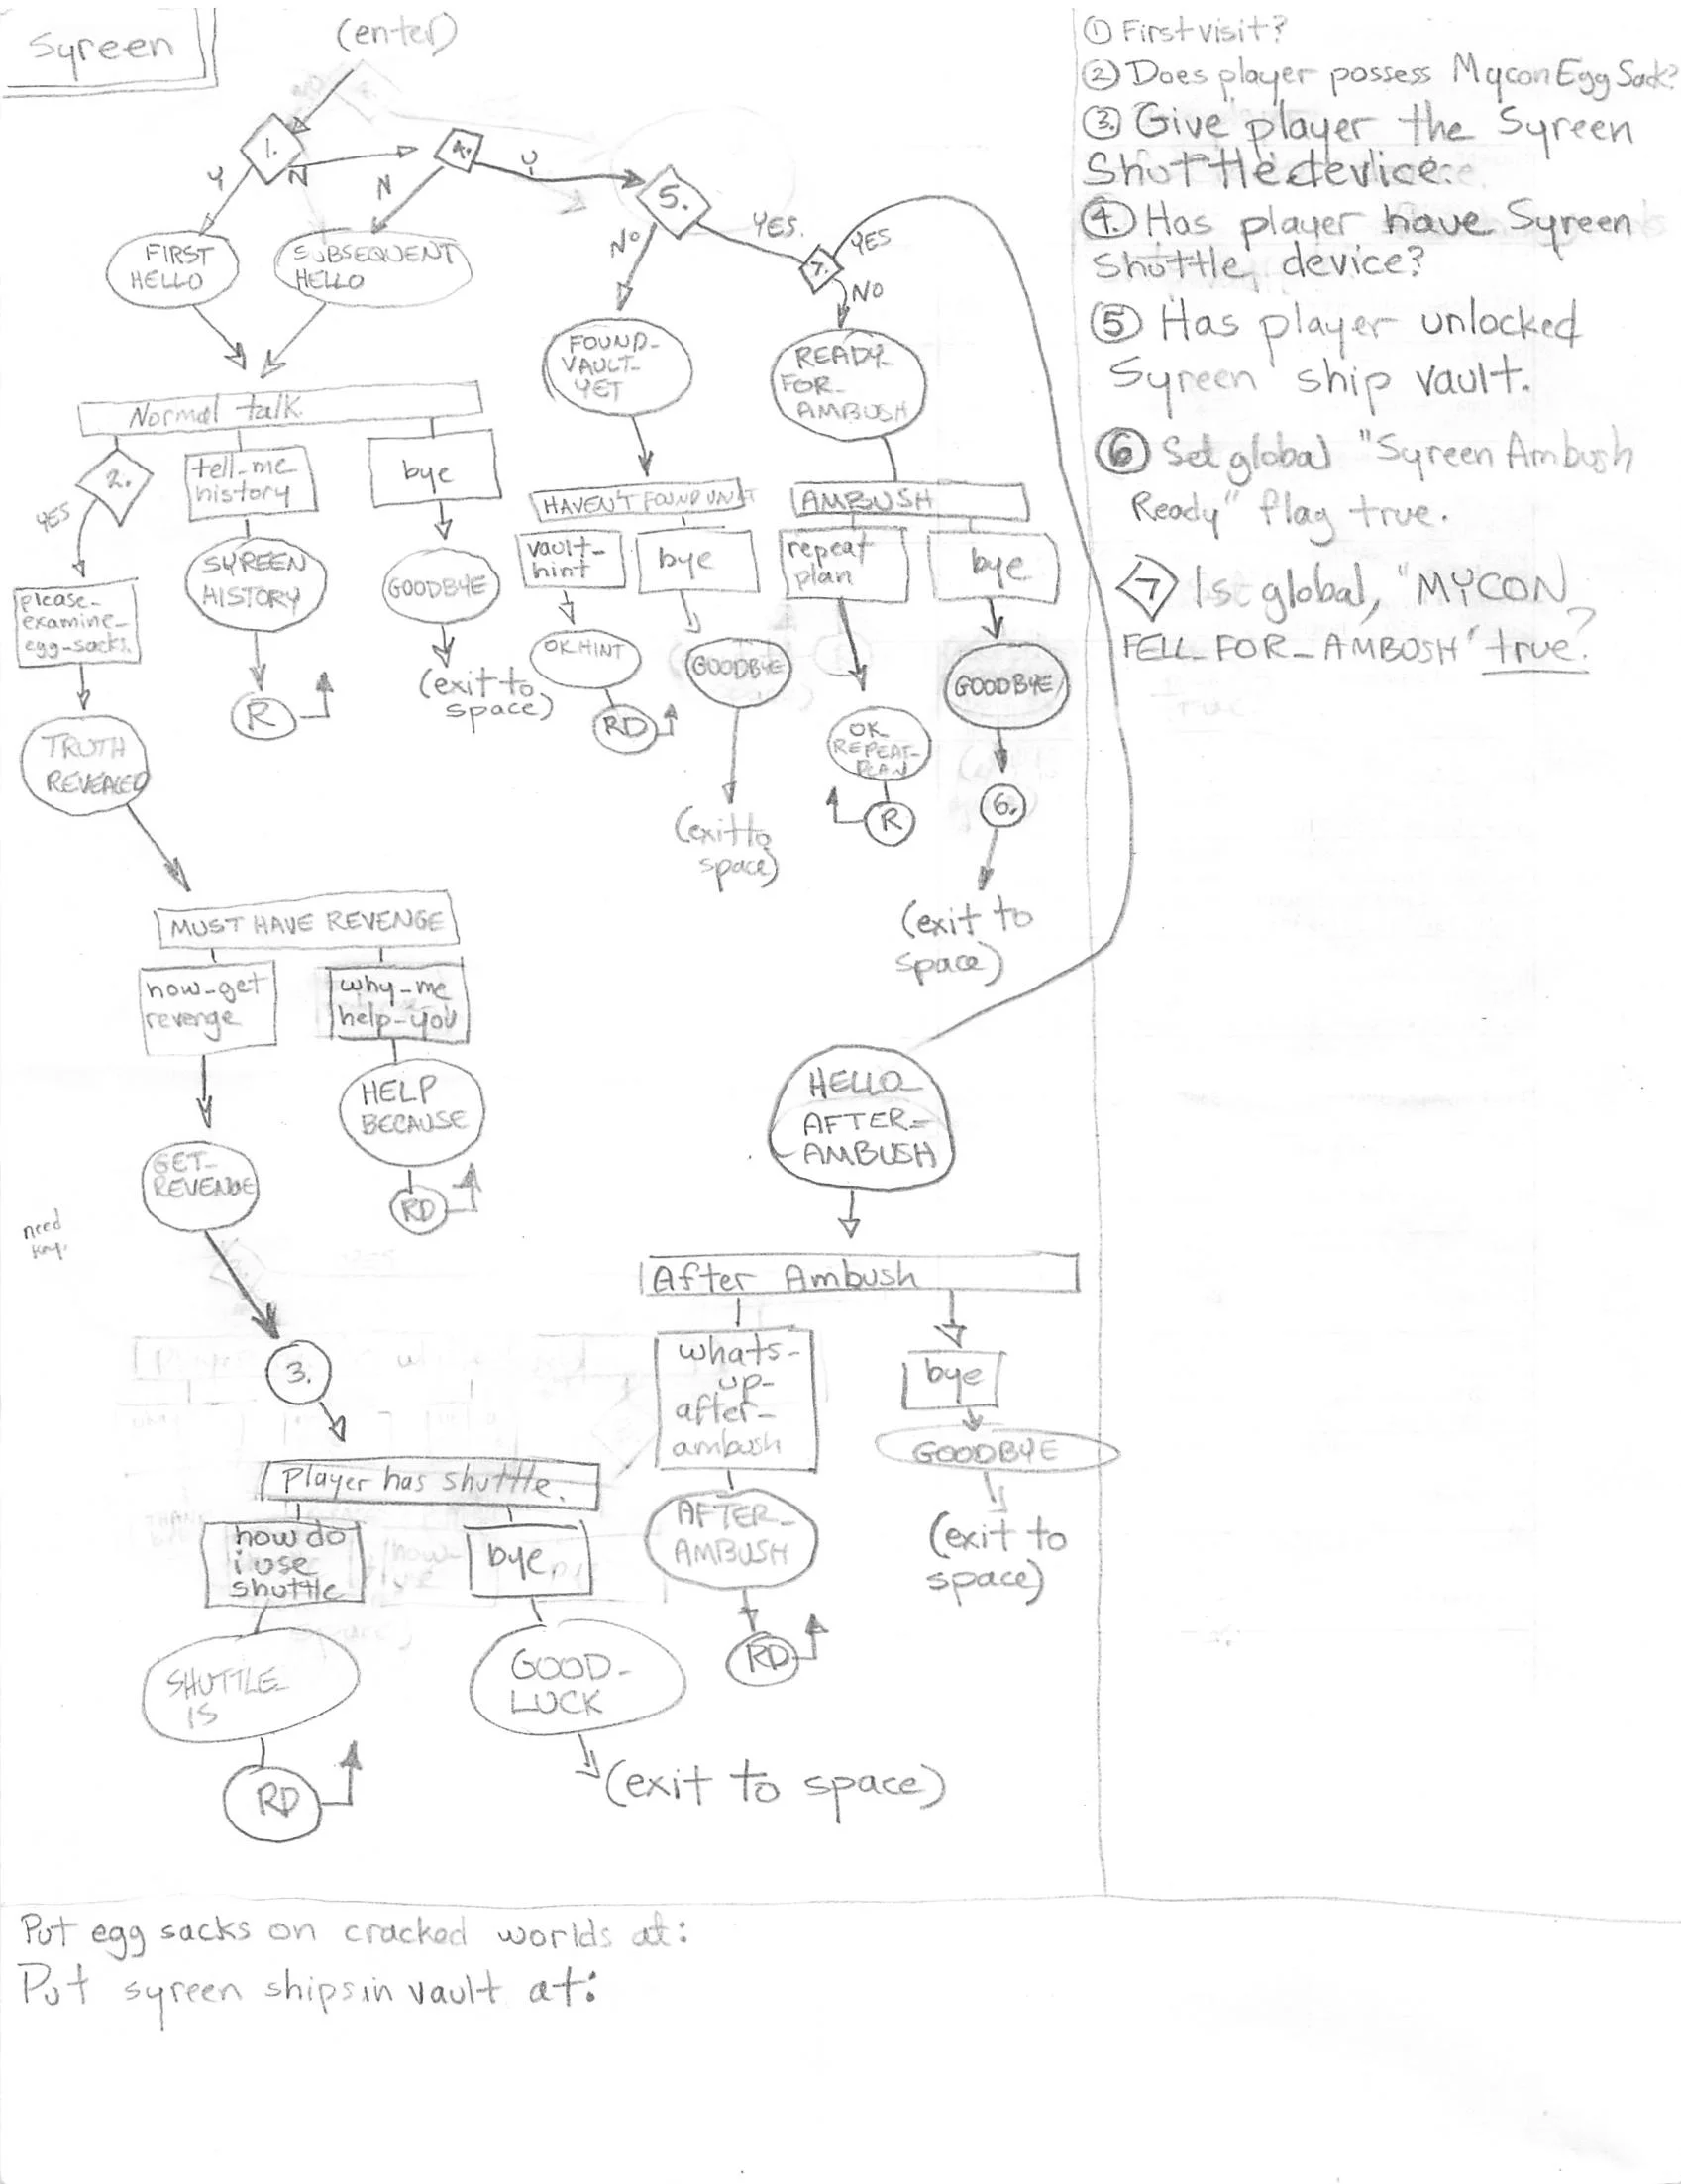 Syreen
(enter)
1.
Y
N
4.
N
Y
5.
NO
YES.
7.
YES
NO
FIRST
HELLO
SUBSEQUENT
HELLO
FOUND-
VAULT-
YET
READY-
FOR-
AMBUSH
Normal talk.
2.
YES
tell-me
history
bye
please-
examine-
egg-sacks.
SYREEN
HISTORY
GOODBYE
R
(exit to
space)
TRUTH
REVEALED
HAVEN'T FOUND VAULT
vault-
hint
bye
OK HINT
GOODBYE
RD
(exit to
space)
AMBUSH
repeat
plan
bye
OK
REPEAT-
PLAN
R
GOODBYE
6.
(exit to
space)
MUST HAVE REVENGE
how-get
revenge
why-me
help-you
GET-
REVENGE
HELP
BECAUSE
RD
need
3.
Player has shuttle.
how do
i use
shuttle
bye.
SHUTTLE-
IS
GOOD-
LUCK
RD
(exit to space)
HELLO-
AFTER-
AMBUSH
After Ambush
whats-
up-
after-
ambush
bye
AFTER-
AMBUSH
GOODBYE
RD
(exit to
space)
① First visit?
② Does player possess Mycon Egg Sack?
③. Give player the Syreen
Shuttle device.
④. Has player have Syreen
shuttle device?
⑤ Has player unlocked
Syreen ship vault.
⑥ Set global "Syreen Ambush
Ready" flag true.
7 Is global, "MYCON
FELL-FOR-AMBUSH" true?
Put egg sacks on cracked worlds at:
Put syreen ships in vault at: